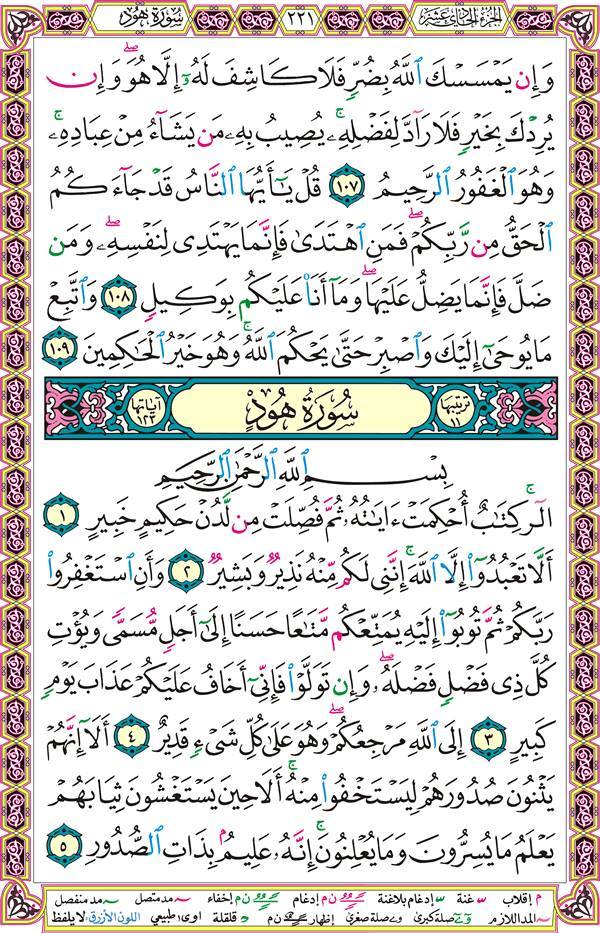 الجزء الحادي عشر ٢٢١ سورة هود
وَإِن يَمْسَسْكَ ٱللَّهُ بِضُرٍّ فَلَا كَاشِفَ لَهُۥٓ إِلَّا هُوَ ۖ وَإِن
يُرِدْكَ بِخَيْرٍ فَلَا رَآدَّ لِفَضْلِهِۦ ۚ يُصِيبُ بِهِۦ مَن يَشَآءُ مِنْ عِبَادِهِۦ ۚ
وَهُوَ ٱلْغَفُورُ ٱلرَّحِيمُ ١٠٧ قُلْ يَٰٓأَيُّهَا ٱلنَّاسُ قَدْ جَآءَكُمُ
ٱلْحَقُّ مِن رَّبِّكُمْ ۖ فَمَنِ ٱهْتَدَىٰ فَإِنَّمَا يَهْتَدِى لِنَفْسِهِۦ ۖ وَمَن
ضَلَّ فَإِنَّمَا يَضِلُّ عَلَيْهَا ۖ وَمَآ أَنَا۠ عَلَيْكُم بِوَكِيلٍ ١٠٨ وَٱتَّبِعْ
مَا يُوحَىٰٓ إِلَيْكَ وَٱصْبِرْ حَتَّىٰ يَحْكُمَ ٱللَّهُ ۚ وَهُوَ خَيْرُ ٱلْحَٰكِمِينَ ١٠٩
ترتيبها ١١ سُورَةُ هُودٍ آياتها ١٢٣
بِسْمِ ٱللَّهِ ٱلرَّحْمَٰنِ ٱلرَّحِيمِ
الٓر ۚ كِتَٰبٌ أُحْكِمَتْ ءَايَٰتُهُۥ ثُمَّ فُصِّلَتْ مِن لَّدُنْ حَكِيمٍ خَبِيرٍ ١
أَلَّا تَعْبُدُوٓا۟ إِلَّا ٱللَّهَ ۚ إِنَّنِى لَكُم مِّنْهُ نَذِيرٌ وَبَشِيرٌ ٢ وَأَنِ ٱسْتَغْفِرُوا۟
رَبَّكُمْ ثُمَّ تُوبُوٓا۟ إِلَيْهِ يُمَتِّعْكُم مَّتَٰعًا حَسَنًا إِلَىٰٓ أَجَلٍ مُّسَمًّى وَيُؤْتِ
كُلَّ ذِى فَضْلٍ فَضْلَهُۥ ۖ وَإِن تَوَلَّوْا۟ فَإِنِّىٓ أَخَافُ عَلَيْكُمْ عَذَابَ يَوْمٍ
كَبِيرٍ ٣ إِلَى ٱللَّهِ مَرْجِعُكُمْ ۖ وَهُوَ عَلَىٰ كُلِّ شَىْءٍ قَدِيرٌ ٤ أَلَآ إِنَّهُمْ
يَثْنُونَ صُدُورَهُمْ لِيَسْتَخْفُوا۟ مِنْهُ ۚ أَلَا حِينَ يَسْتَغْشُونَ ثِيَابَهُمْ
يَعْلَمُ مَا يُسِرُّونَ وَمَا يُعْلِنُونَ ۚ إِنَّهُۥ عَلِيمٌۢ بِذَاتِ ٱلصُّدُورِ ٥
م إقلاب س غنة س إدغام بلاغنة ن م إدغام ن م إخفاء ~ مد متصل ~ مد منفصل
~ المد اللازم و ے صلة كبرى و ے صلة صغرى إظهار ن م د قلقلة اوى طبيعي اللون الأزرق: لا يلفظ